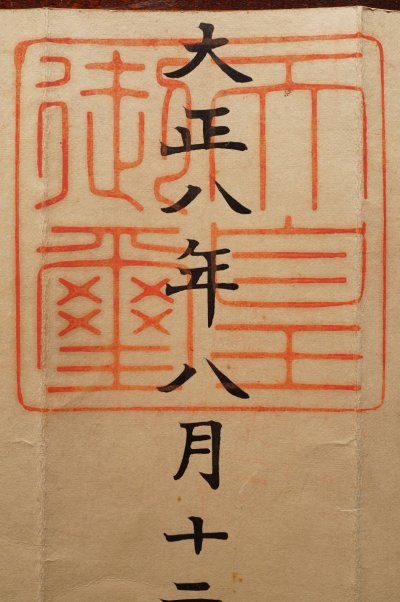 天皇
御璽
大正八年八月十二